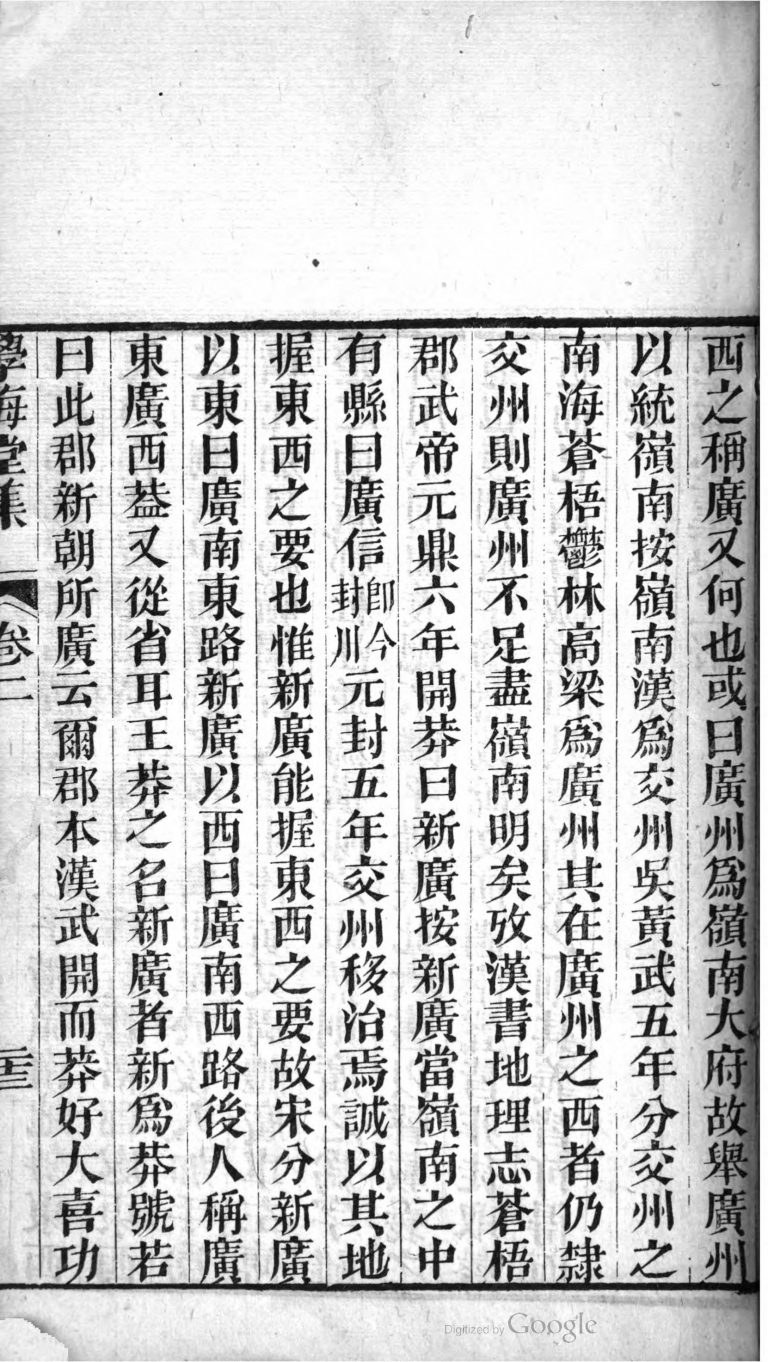 西之稱廣又何也或曰廣州爲嶺南大府故舉廣州
以統嶺南按嶺南漢爲交州吳黃武五年分交州之
南海蒼梧鬱林高梁爲廣州其在廣州之西者仍隸
交州則廣州不足盡嶺南明矣攷漢書地理志蒼梧
郡武帝元鼎六年開莽曰新廣按新廣當嶺南之中
有縣曰廣信卽今封川元封五年交州移治焉誠以其地
握東西之要也惟新廣能握東西之要故宋分新廣
以東曰廣南東路新廣以西曰廣南西路後人稱廣
東廣西葢又從省耳王莽之名新廣者新爲莽號若
曰此郡新朝所廣云爾郡本漢武開而莽好大喜功
學海堂集 卷二
Digitized by Google